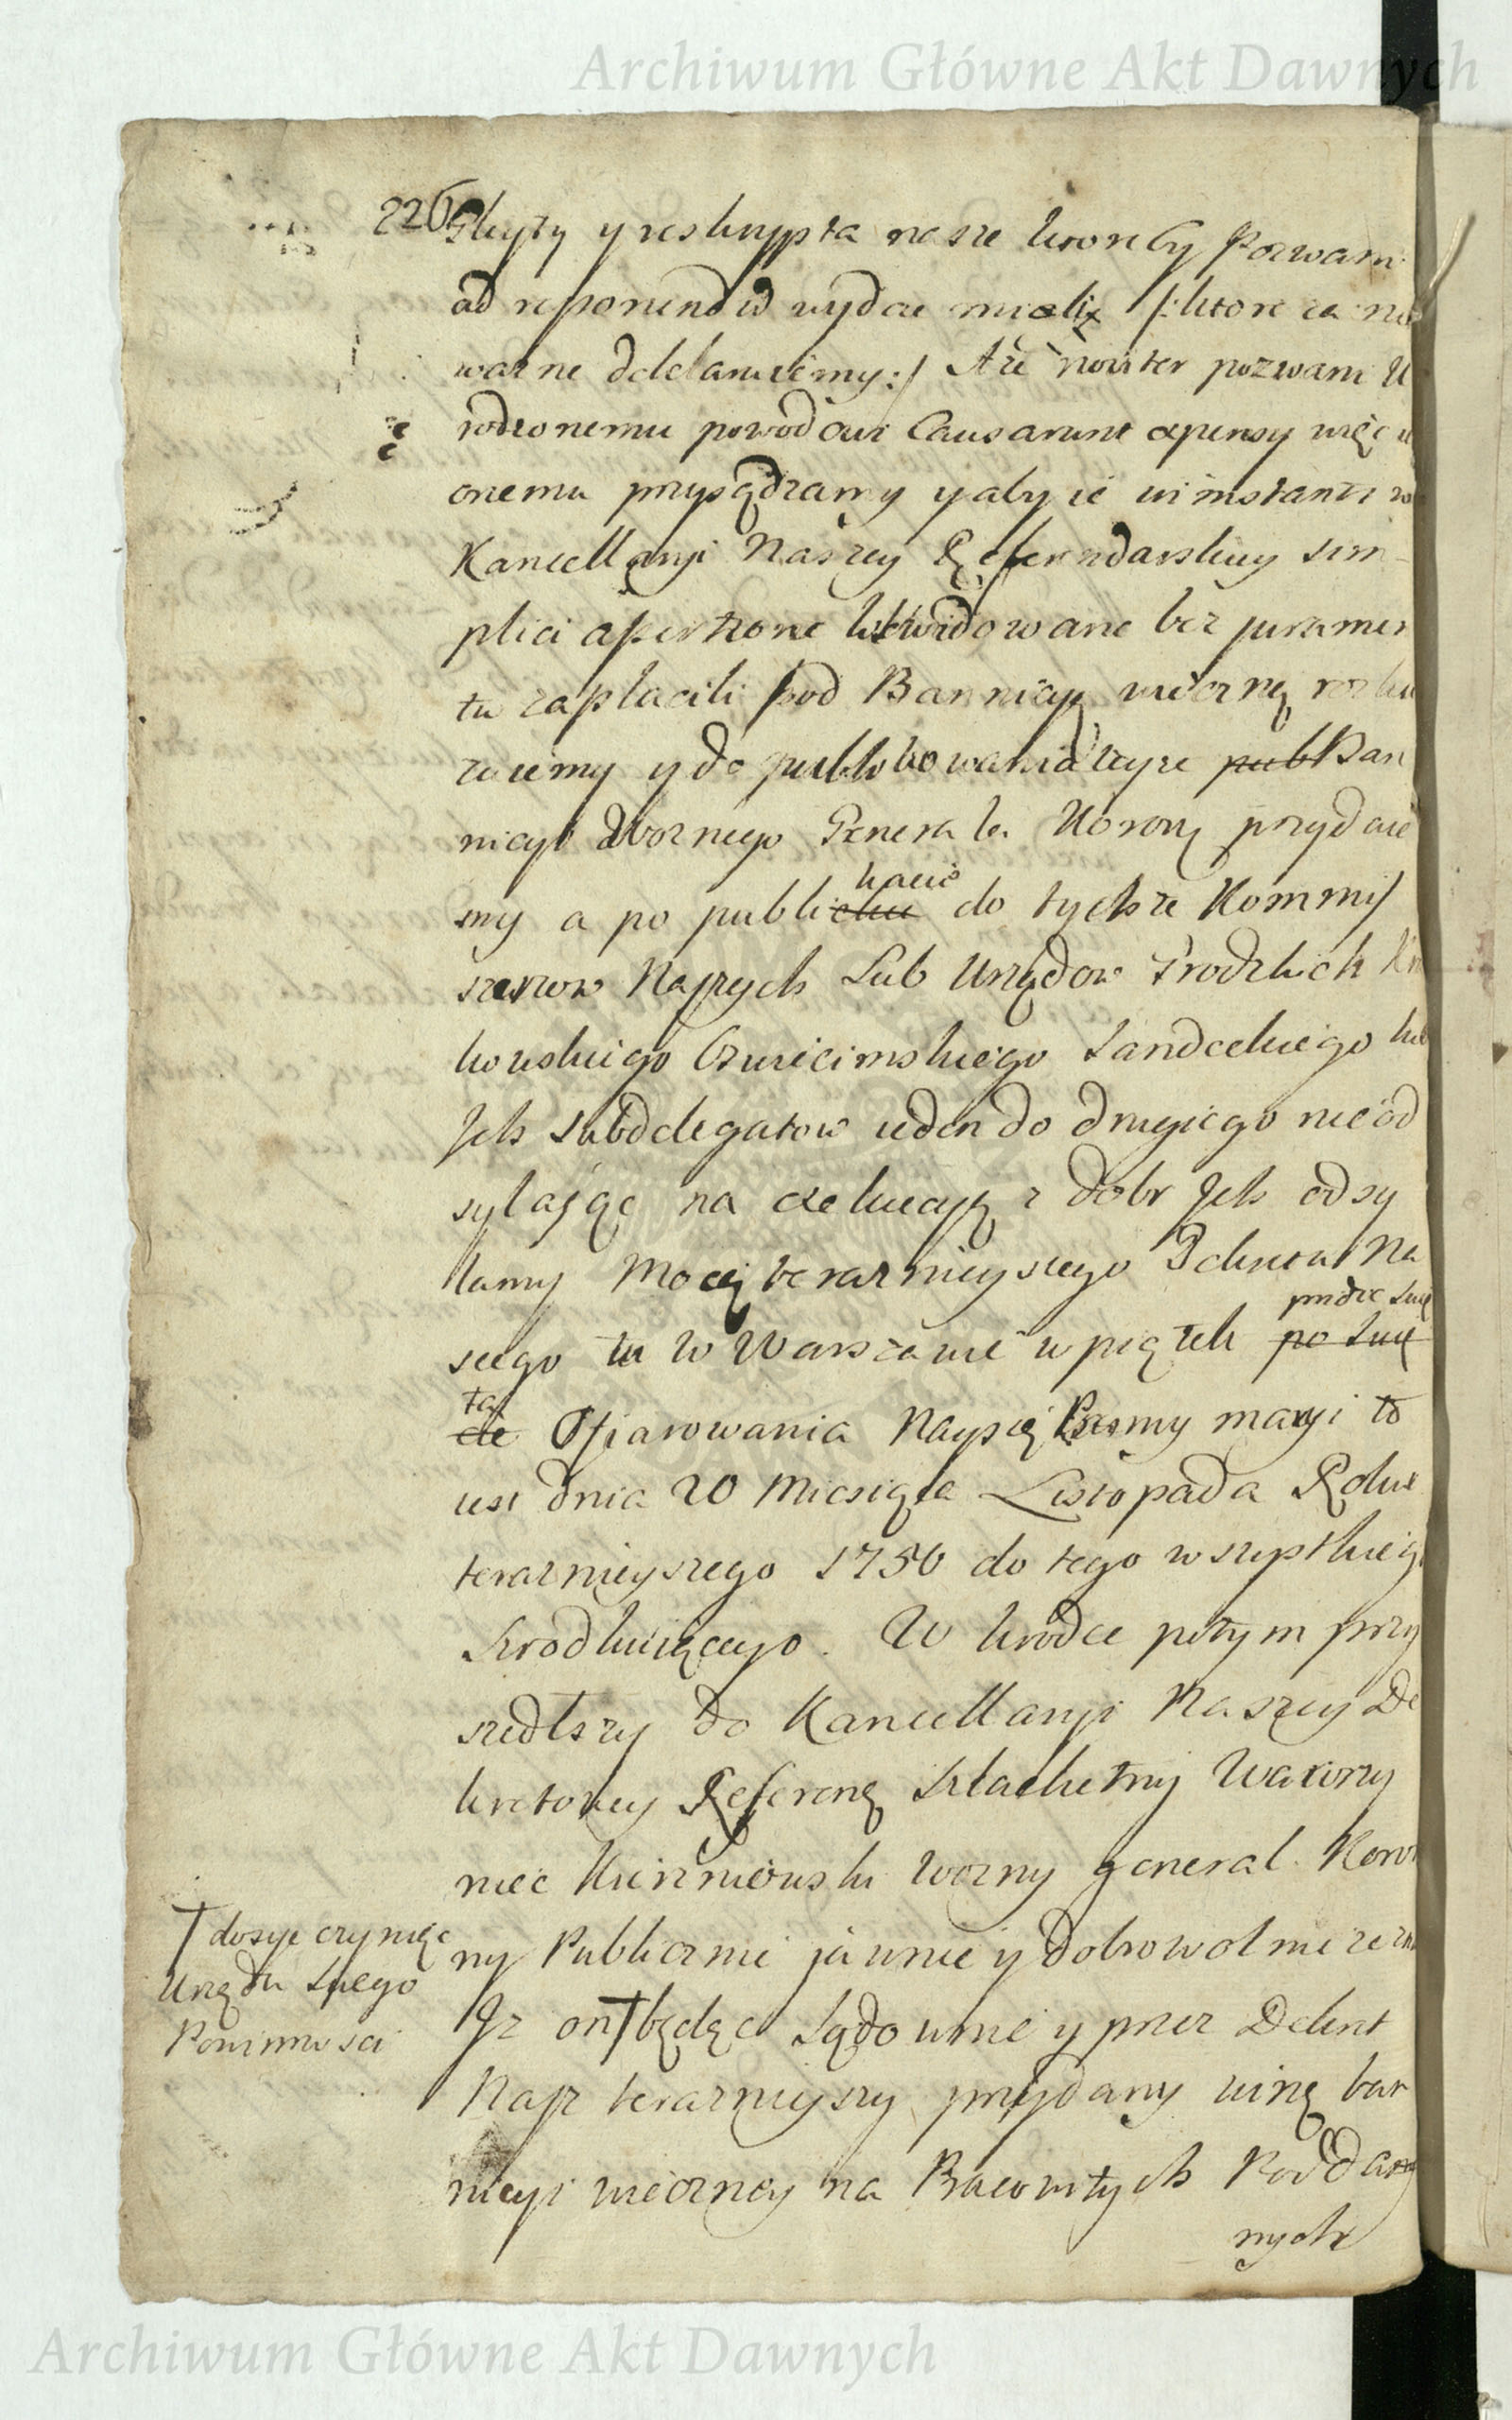 Archiwum Główne Akt Dawnych
226
Gleyty y reskrypta nasze ktoreby Pozwani
ad reponendu wydae mieli /: ktore za nie
wazne deklaruiemy :/ A że noviter pozwani U
rodzonemu powodowi Causarunt expensy więc ie
onemu przysądzamy y aby ie in instanti w
Kancellaryi Naszey Referendarskiey sim
plici assertione likwidowane bez juramen
tu zapłacili pod Bannicyą wieczną rozka
zuiemy y do publikowania teyże pub Ban
nicyi Woznego Generała Korony przydaie
my a po publickacie do tychże Kommis
sarzow Naszych Lub Urzędow Grodzkich Kra
kowskiego Oswiecimskiego Sandeckiego lub
Jch Subdelegatow ieden do drugiego nie od
syłając na exekucyą z dobr Jch odsy
łamy Mocą terazniejszego Dekretu Na
przed Swię
szego tu w Warszawie w piątek po Swię
tą
cie Ofiarowania Nayswię Panny maryi to
iest dnia 20 Miesiąca Listopada Roku
terazniejszego 1750 do tego wszystkiego
Srodkuiącego. W krotce potym przy
szedłszy do Kancellaryi Naszey De
kretowey Referen Szlachetny Wawrzy
niec Kuzniewski Wozny general. Koron
ny Publicznie jawnie y dobrowolnie zeznał
Jż on † będąc Sądownie y przez Dekret
Nasz terazniejszy przydany winę ban
nicyi wieczney na Pracowitych Poddan
nych
† dosyc czyniąc
Urzędu Swego
Powinnosci
Archiwum Główne Akt Dawnych